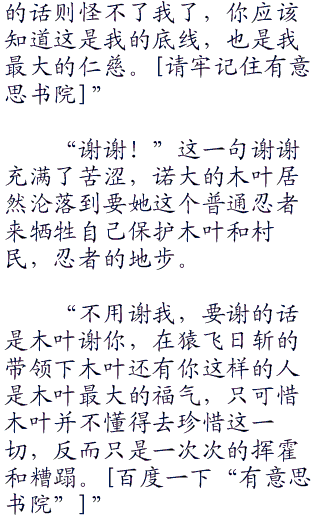 的话则怪不了我了，你应该
知道这是我的底线，也是我
最大的仁慈。[请牢记住有意
思书院]”
“谢谢！”这一句谢谢
充满了苦涩，诺大的木叶居
然沦落到要她这个普通忍者
来牺牲自己保护木叶和村
民，忍者的地步。
“不用谢我，要谢的话
是木叶谢你，在猿飞日斩的
带领下木叶还有你这样的人
是木叶最大的福气，只可惜
木叶并不懂得去珍惜这一
切，反而只是一次次的挥霍
和糟蹋。[百度一下“有意思
书院”]”